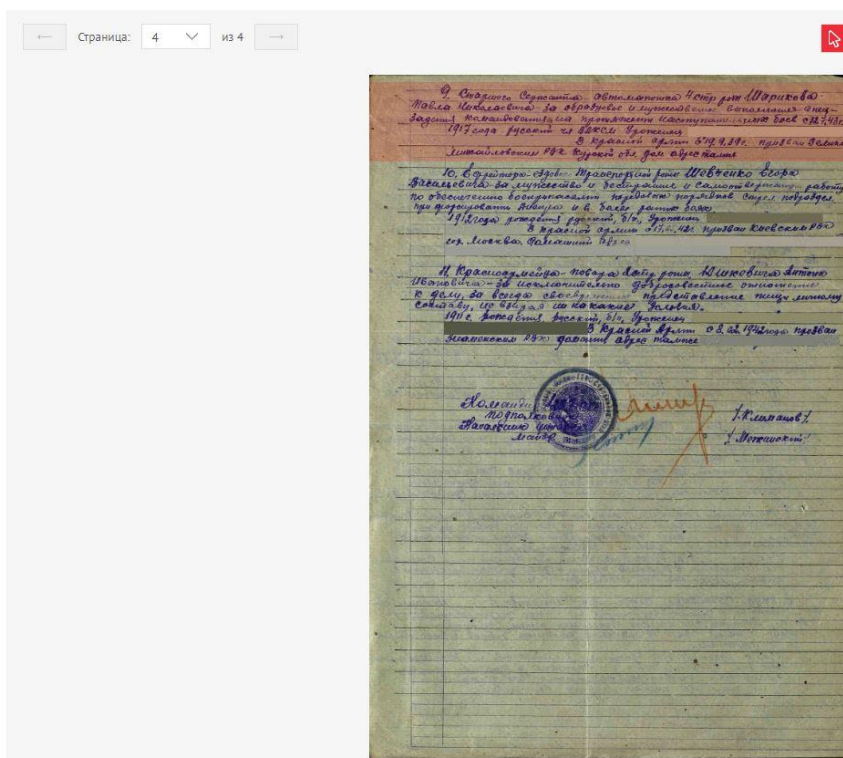 Страница: 4 из 4
9. Старшего Сержанта - автоматчика 4 стр роты Шарикова
Павла Николаевича - за образцовое и мужественное выполнение спец-
задания командования на протяжении наступательных боев с
1917 года русский чл ВЛКСМ Уроженец
В Красной армии с 19.9.39г. призван Велико
Михайловским РВК Курской обл дом адрес там же
10. Ефрейтора - ездового Транспортной роты Шевченко Егора
Васильевича - за мужество и бесстрашие и самоотверженную работу
по обеспечению боеприпасами передовых порядков стрел подраздел.
при форсировании Днепра и в боях
1912 года рождения русский, б/п, Уроженец
В Красной армии с призван Киевским РВК
гор. Москва. Домашний адрес
11. Красноармейца - повара роты Антона
Ивановича - за исключительно добросовестное отношение
к делу, за всегда своевременное представление пищи личному
составу, не взирая ни на какие условия.
1911 г. рождения русский, б/п, Уроженец
В Красной Армии с 1942 года призван
Знаменским РВК домашний адрес там же
Командир
подполковник /Климанов/.
Начальник штаба
майор